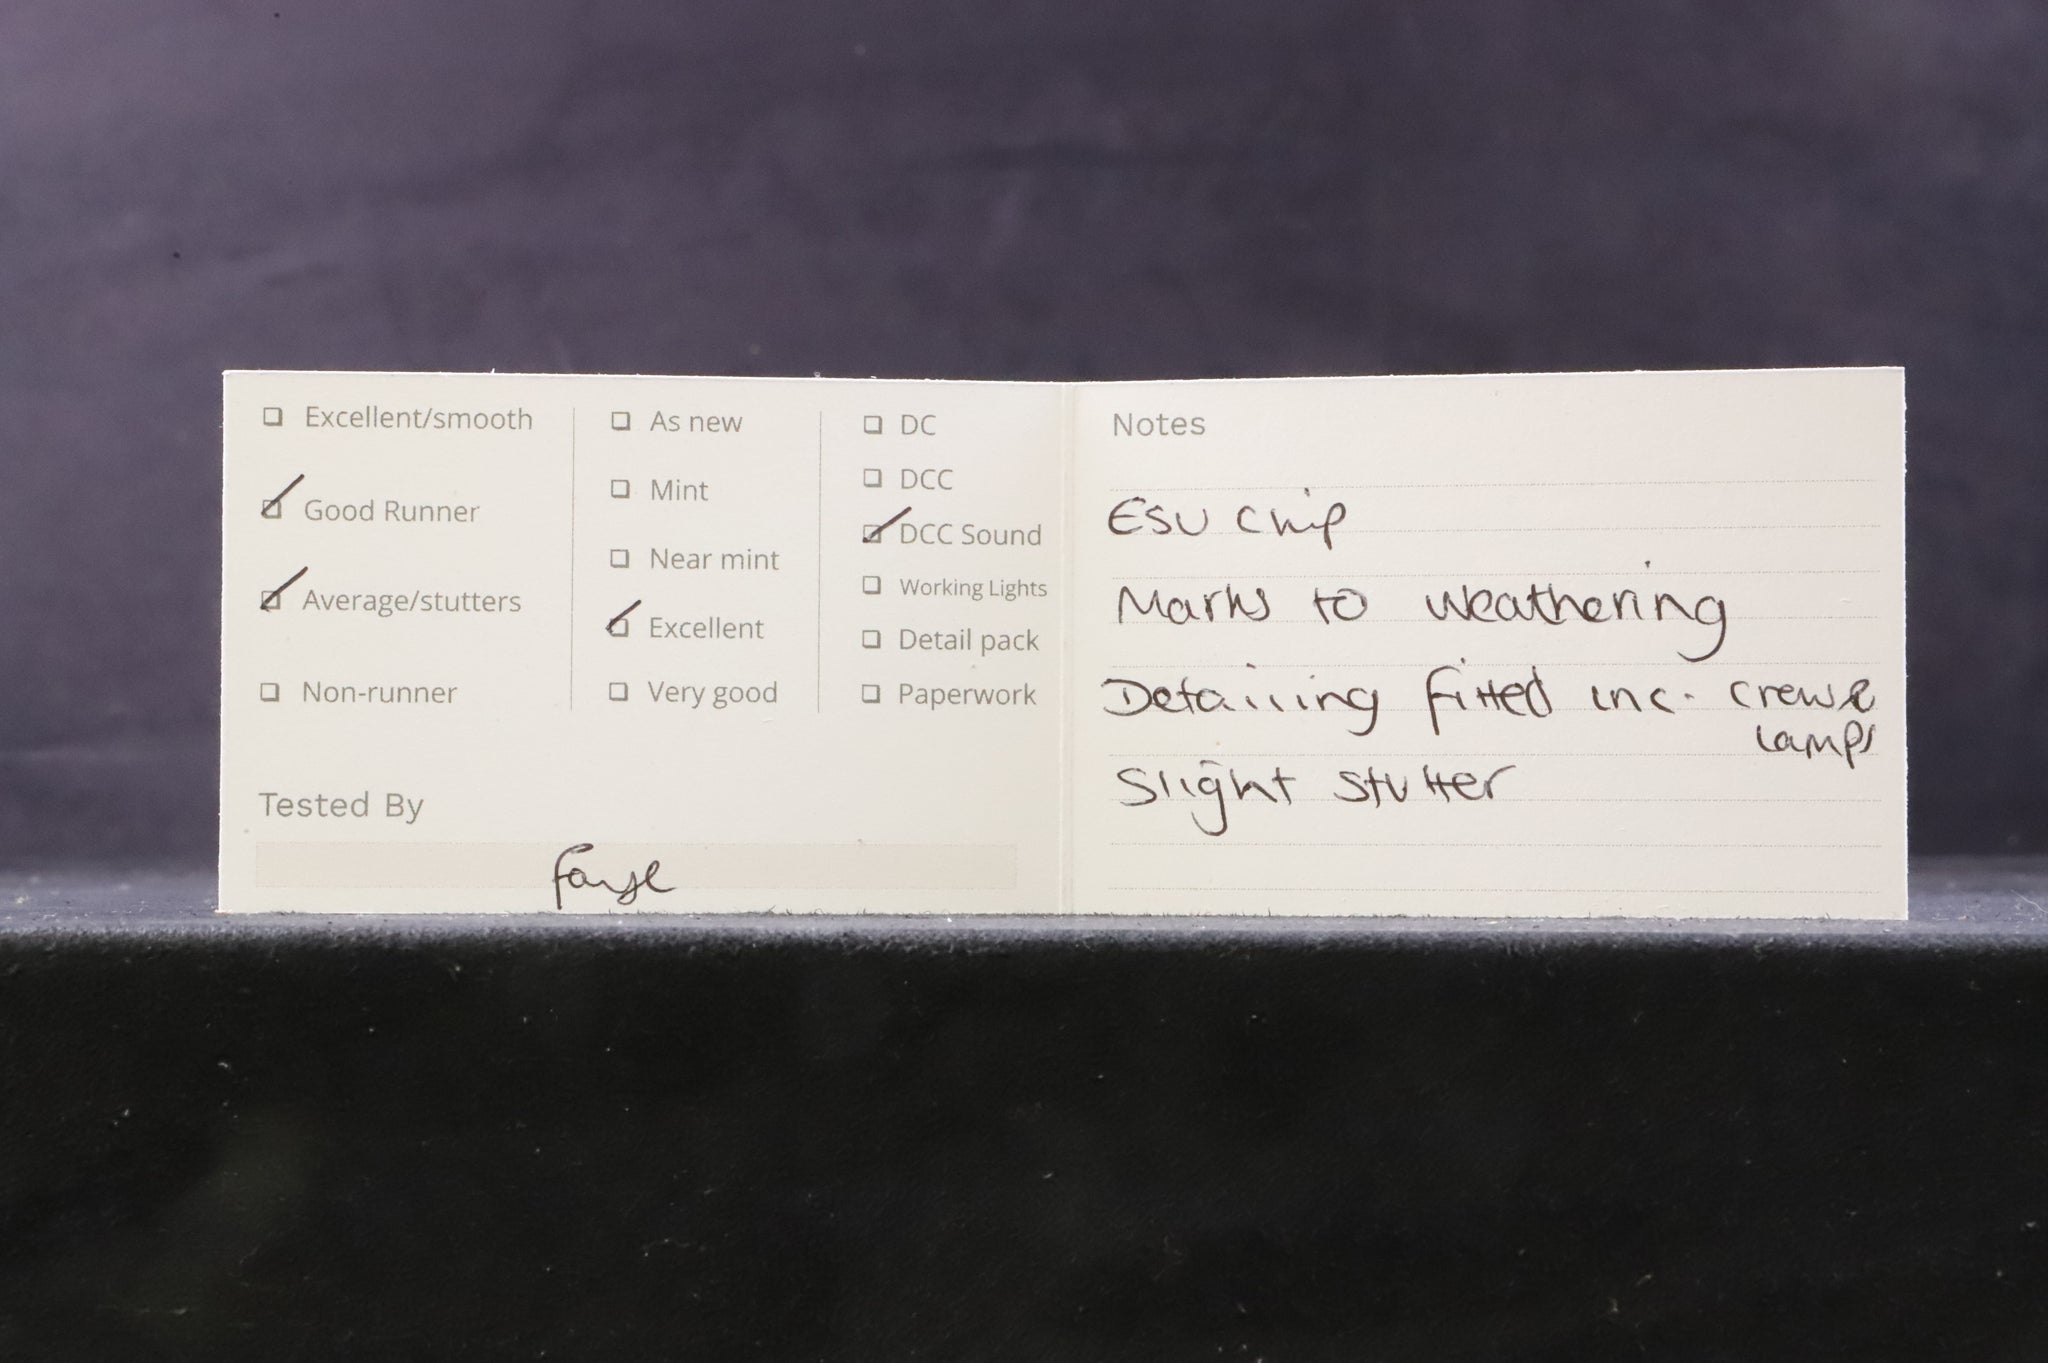 Excellent/smooth
Good Runner
Average/stutters
Non-runner
As new
Mint
Near mint
Excellent
Very good
DC
DCC
DCC Sound
Working Lights
Detail pack
Paperwork
Tested By
Faye
Notes
ESU Chip
Marks to weathering
Detailing fitted inc. crew &
lamps
Slight stutter